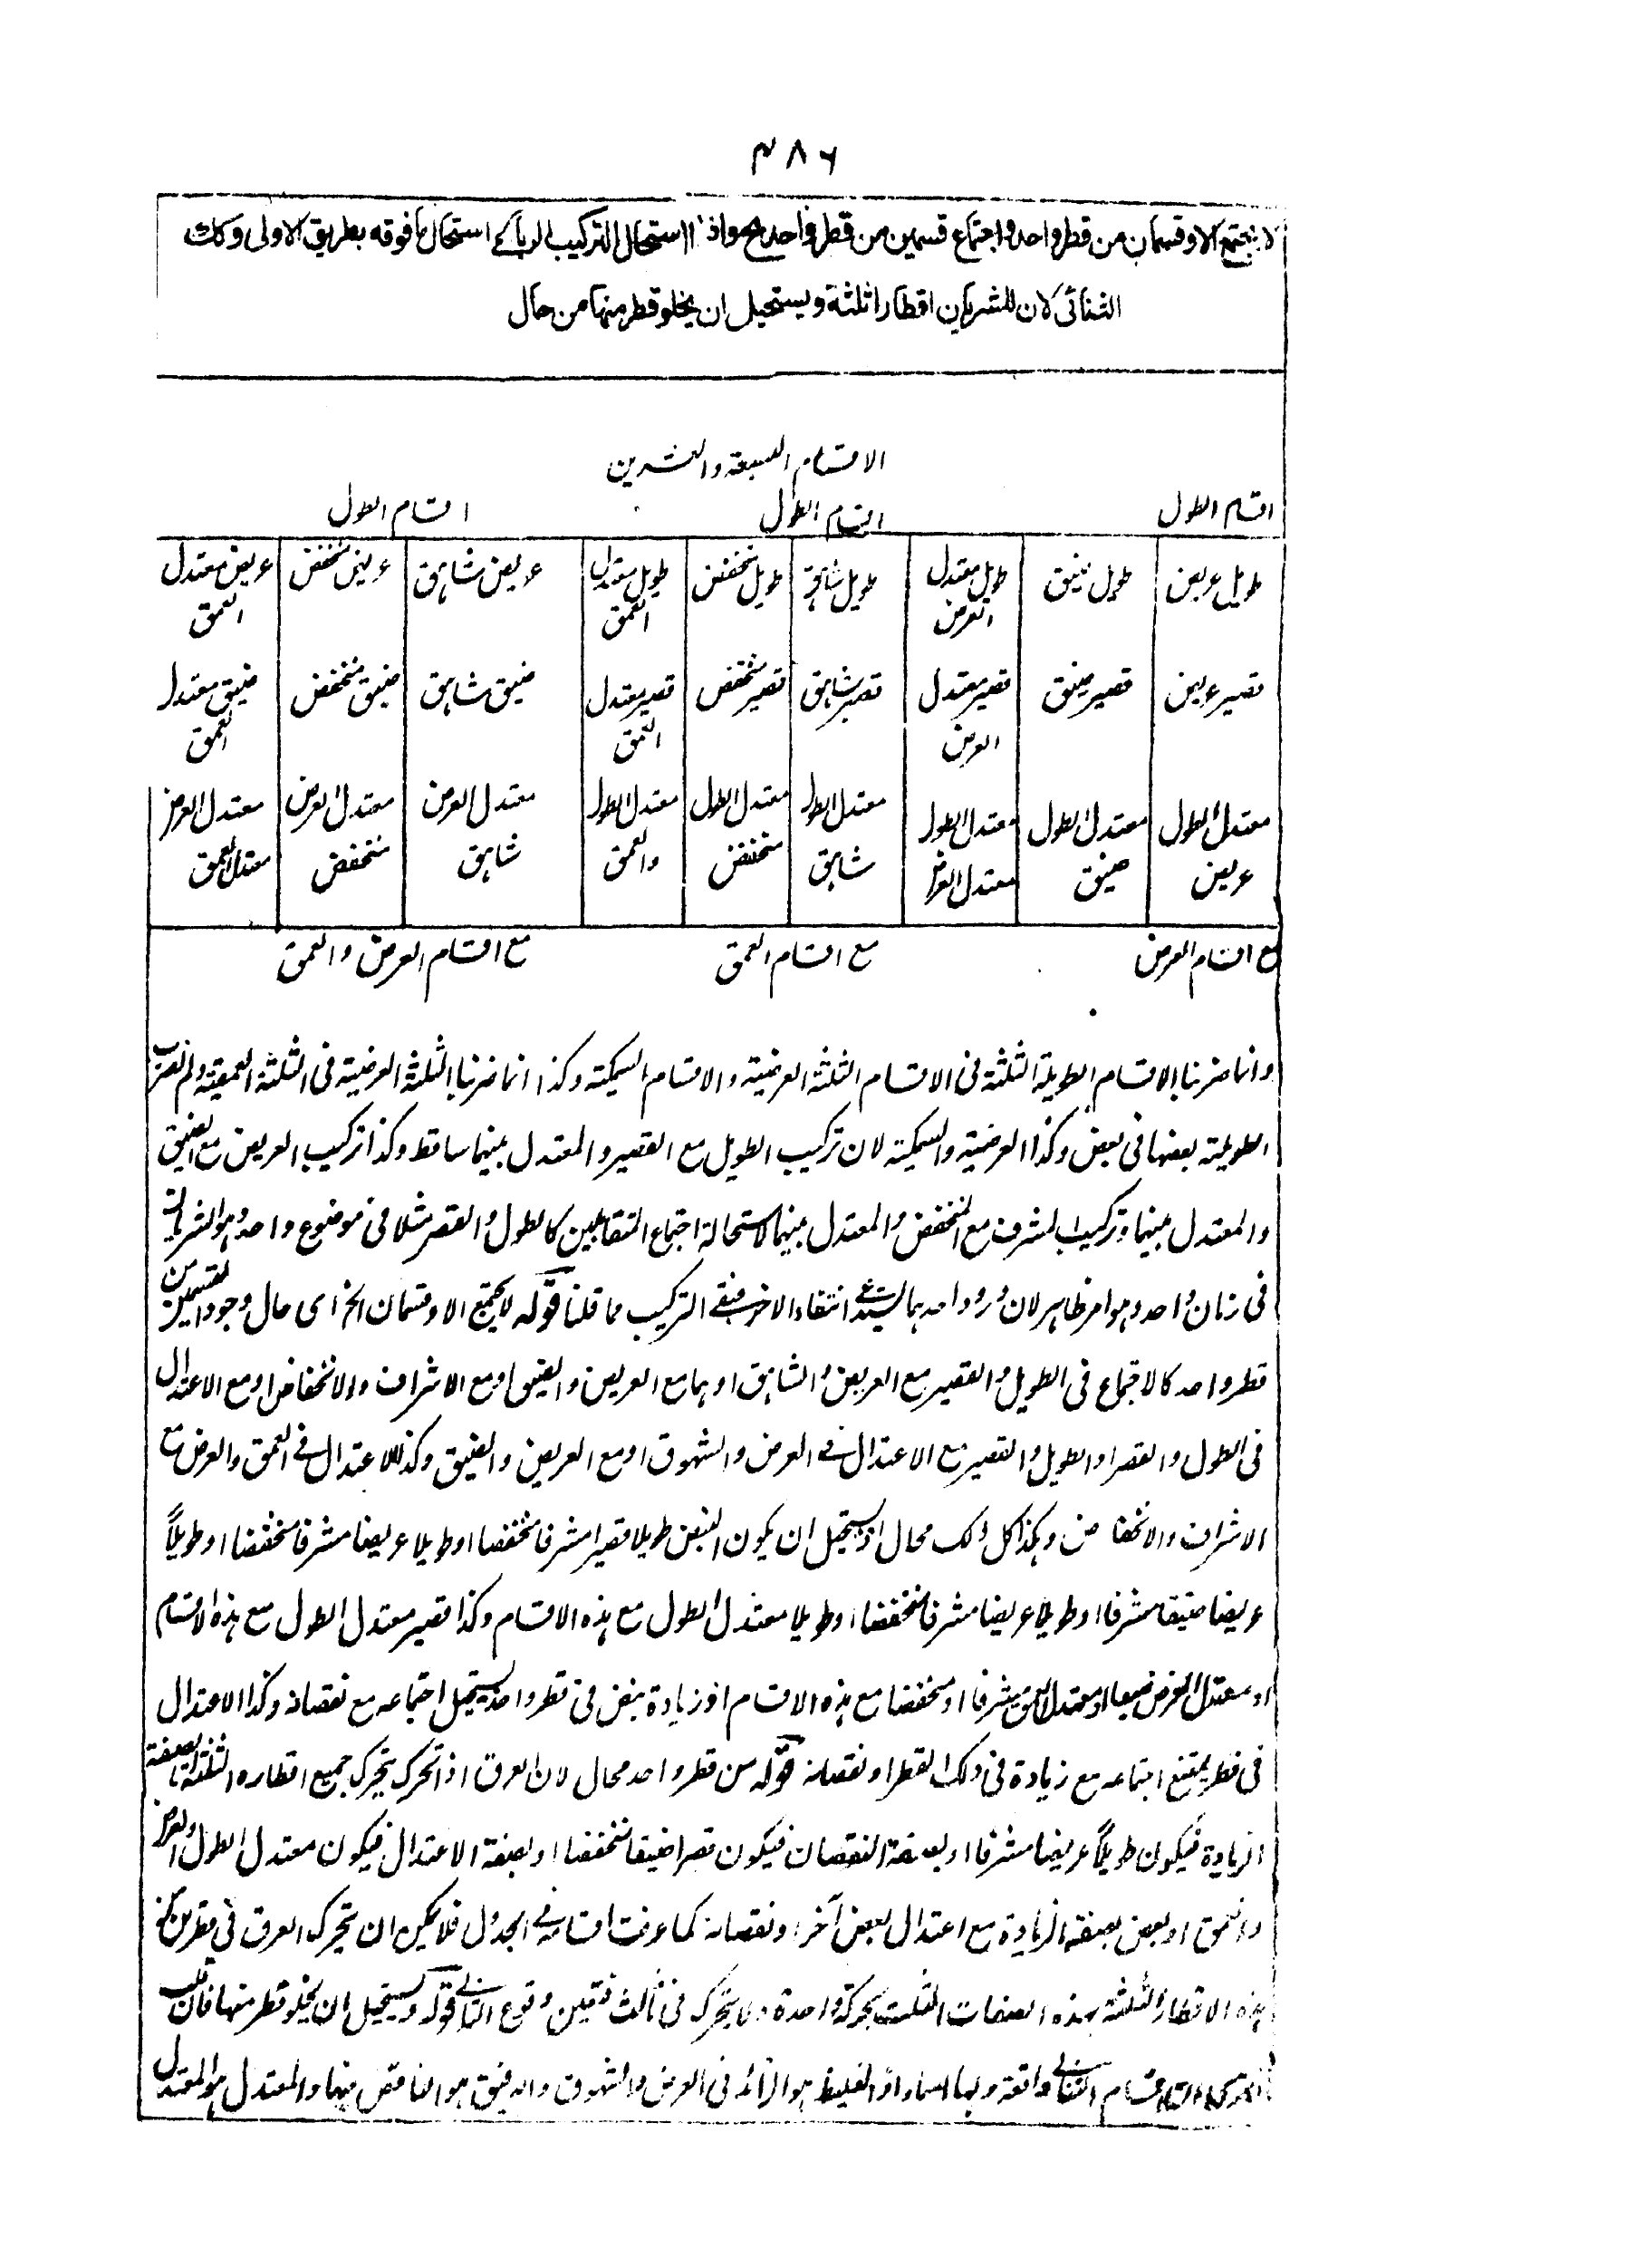 ٣٨٦
لا يجتمع الا وقسمان من قطر واحد واجتماع قسمين من قطر واحد مح واذا استحال التركيب الرباعي استحال ما فوقه بطريق الاولى وكذلك
الثنائى لان للشريان اقطارا ثلثة ويستحيل ان يخلو قطر منها من حال
الاقسام السبعة والعشرين
اقسام الطول اقسام الطول اقسام الطول
طويل عريض طويل ضيق طويل معتدل العرض طويل شاهق طويل منخفض طويل معتدل العمق عريض شاهق عريض منخفض عريض معتدل العمق
قصير عريض قصير ضيق قصير معتدل العرض قصير شاهق قصير منخفض قصير معتدل العمق ضيق شاهق ضيق منخفض ضيق معتدل العمق
معتدل الطول عريض معتدل الطول ضيق معتدل الطول معتدل العرض معتدل الطول شاهق معتدل الطول منخفض معتدل الطول والعمق معتدل العرض شاهق معتدل العرض منخفض معتدل العرض معتدل العمق
مع اقسام العرض مع اقسام العمق مع اقسام العرض والعمق
وانما ضربنا الاقسام الطويلة الثلثة فى الاقسام الثلثة العرضية والاقسام السمكية وكذا انما ضربنا الثلثة العرضية فى الثلثة العمقية ولم نضرب
الطولية بعضها فى بعض وكذا العرضية والسمكية لان تركيب الطويل مع القصير والمعتدل بينهما ساقط وكذا تركيب العريض مع الضيق
والمعتدل بينهما وتركيب المشرف مع المنخفض والمعتدل بينهما لاستحالة اجتماع المتقابلين كالطول والقصر مثلا فى موضوع واحد وهو الشريان
فى زمان واحد وهو امر ظاهر لان ورود احدهما يستدعي انتفاء الاخر فبقي التركيب مما قلنا قوله لا يجتمع الا وقسمان الخ اى حال وجود القسمين من
قطر واحد كالاجتماع فى الطويل والقصير مع العريض والشاهق او هما مع العريض والضيق او مع الاشراف والانخفاض او مع الاعتدال
فى الطول والقصر او الطويل والقصير مع الاعتدال فى العرض والشهوق او مع العريض والضيق وكذا الاعتدال فى العمق والعرض مع
الاشراف والانخفاض وهكذا كل ذلك محال اذ يستحيل ان يكون النبض طويلا قصيرا مشرفا منخفضا او طويلا عريضا مشرفا منخفضا او طويلاً
عريضا ضيقا مشرفا او طويلا عريضا مشرفا منخفضا او طويلا معتدل الطول مع هذه الاقسام وكذا قصير معتدل الطول مع هذه الاقسام
او معتدل العرض ضيقا او معتدل العمق مشرفا او منخفضا مع هذه الاقسام اذ زيادة نبض فى قطر واحد يستحيل اجتماعه مع نقصانه وكذا الاعتدال
فى قطر يمتنع اجتماعه مع زيادة فى ذلك القطر او نقصانه قوله من قطر واحد محال لان العرق اذا تحرك يتحرك جميع اقطاره الثلثة اما بصفة
الزيادة فيكون طويلاً عريضا مشرفا او بصفة النقصان فيكون قصيرا ضيقا منخفضا او بصفة الاعتدال فيكون معتدل الطول والعرض
والعمق او بعض بصفة الزيادة مع اعتدال بعض آخر او نقصانه كما عرفت اقسامه فى الجدول فلا يمكن ان يتحرك العرق فى قطرين من
هذه الاقطار الثلثة بهذه الصفات الثلث بحركة واحدة ولا يتحرك فى ثالث فتعين وقوع الثلاثى قوله ويستحيل ان يخلو قطر منها فان قلت
اقسام الثنائى واقعة ولها اسماء اذ الغليظ هو الزائد فى العرض والشهوق والدقيق هو الناقص فيهما والمعتدل هو المعتدل